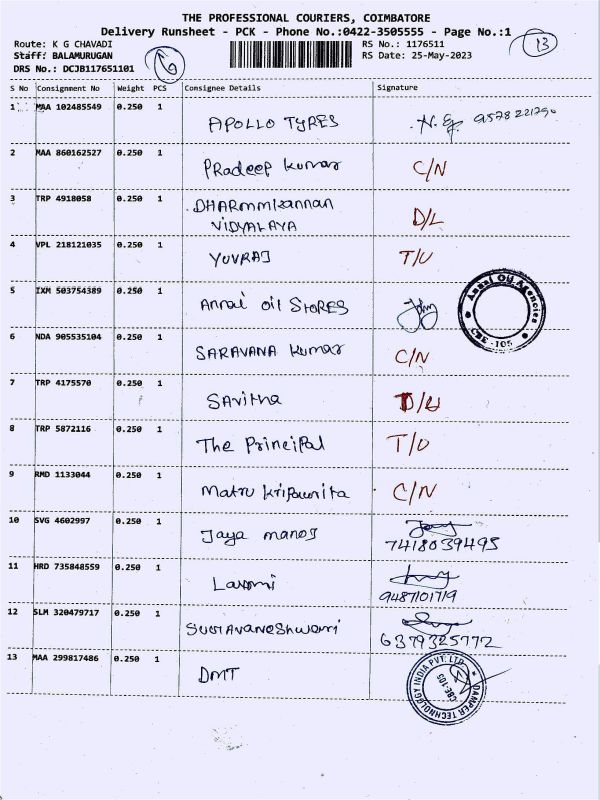 THE PROFESSIONAL COURIERS, COIMBATORE
Delivery Runsheet - PCK - Phone No.:0422-3505555 - Page No.:1
Route: K G CHAVADI RS No.: 1176511 13
Staff: BALAMURUGAN RS Date: 25-May-2023
DRS No.: DCJB117651101
S No Consignment No Weight PCS Consignee Details Signature
1 MAA 102485549 0.250 1 APOLLO TYRES
2 MAA 860162527 0.250 1 Pradeep Kumar C/N
3 TRP 4918058 0.250 1 DHARmmKannan
VIDYALAYA D/L
4 VPL 218121035 0.250 1 YUVRAJ T/U
5 IXM 503754389 0.250 1 Annai Oil STORES Annai Oil Agencies CBE-105
6 NDA 905535104 0.250 1 SARAVANA Kumar C/N
7 TRP 4175570 0.250 1 Savitha D/L
8 TRP 5872116 0.250 1 The Principal T/U
9 RMD 1133044 0.250 1 C/N
10 SVG 4602997 0.250 1 Jaya manoj
7418039495
11 HRD 735848559 0.250 1 Laxmi
9487101719
12 SLM 320479717 0.250 1
6379325772
13 MAA 299817486 0.250 1 DMT DAMPER TECHNOLOGY INDIA PVT. LTD. CBE-105